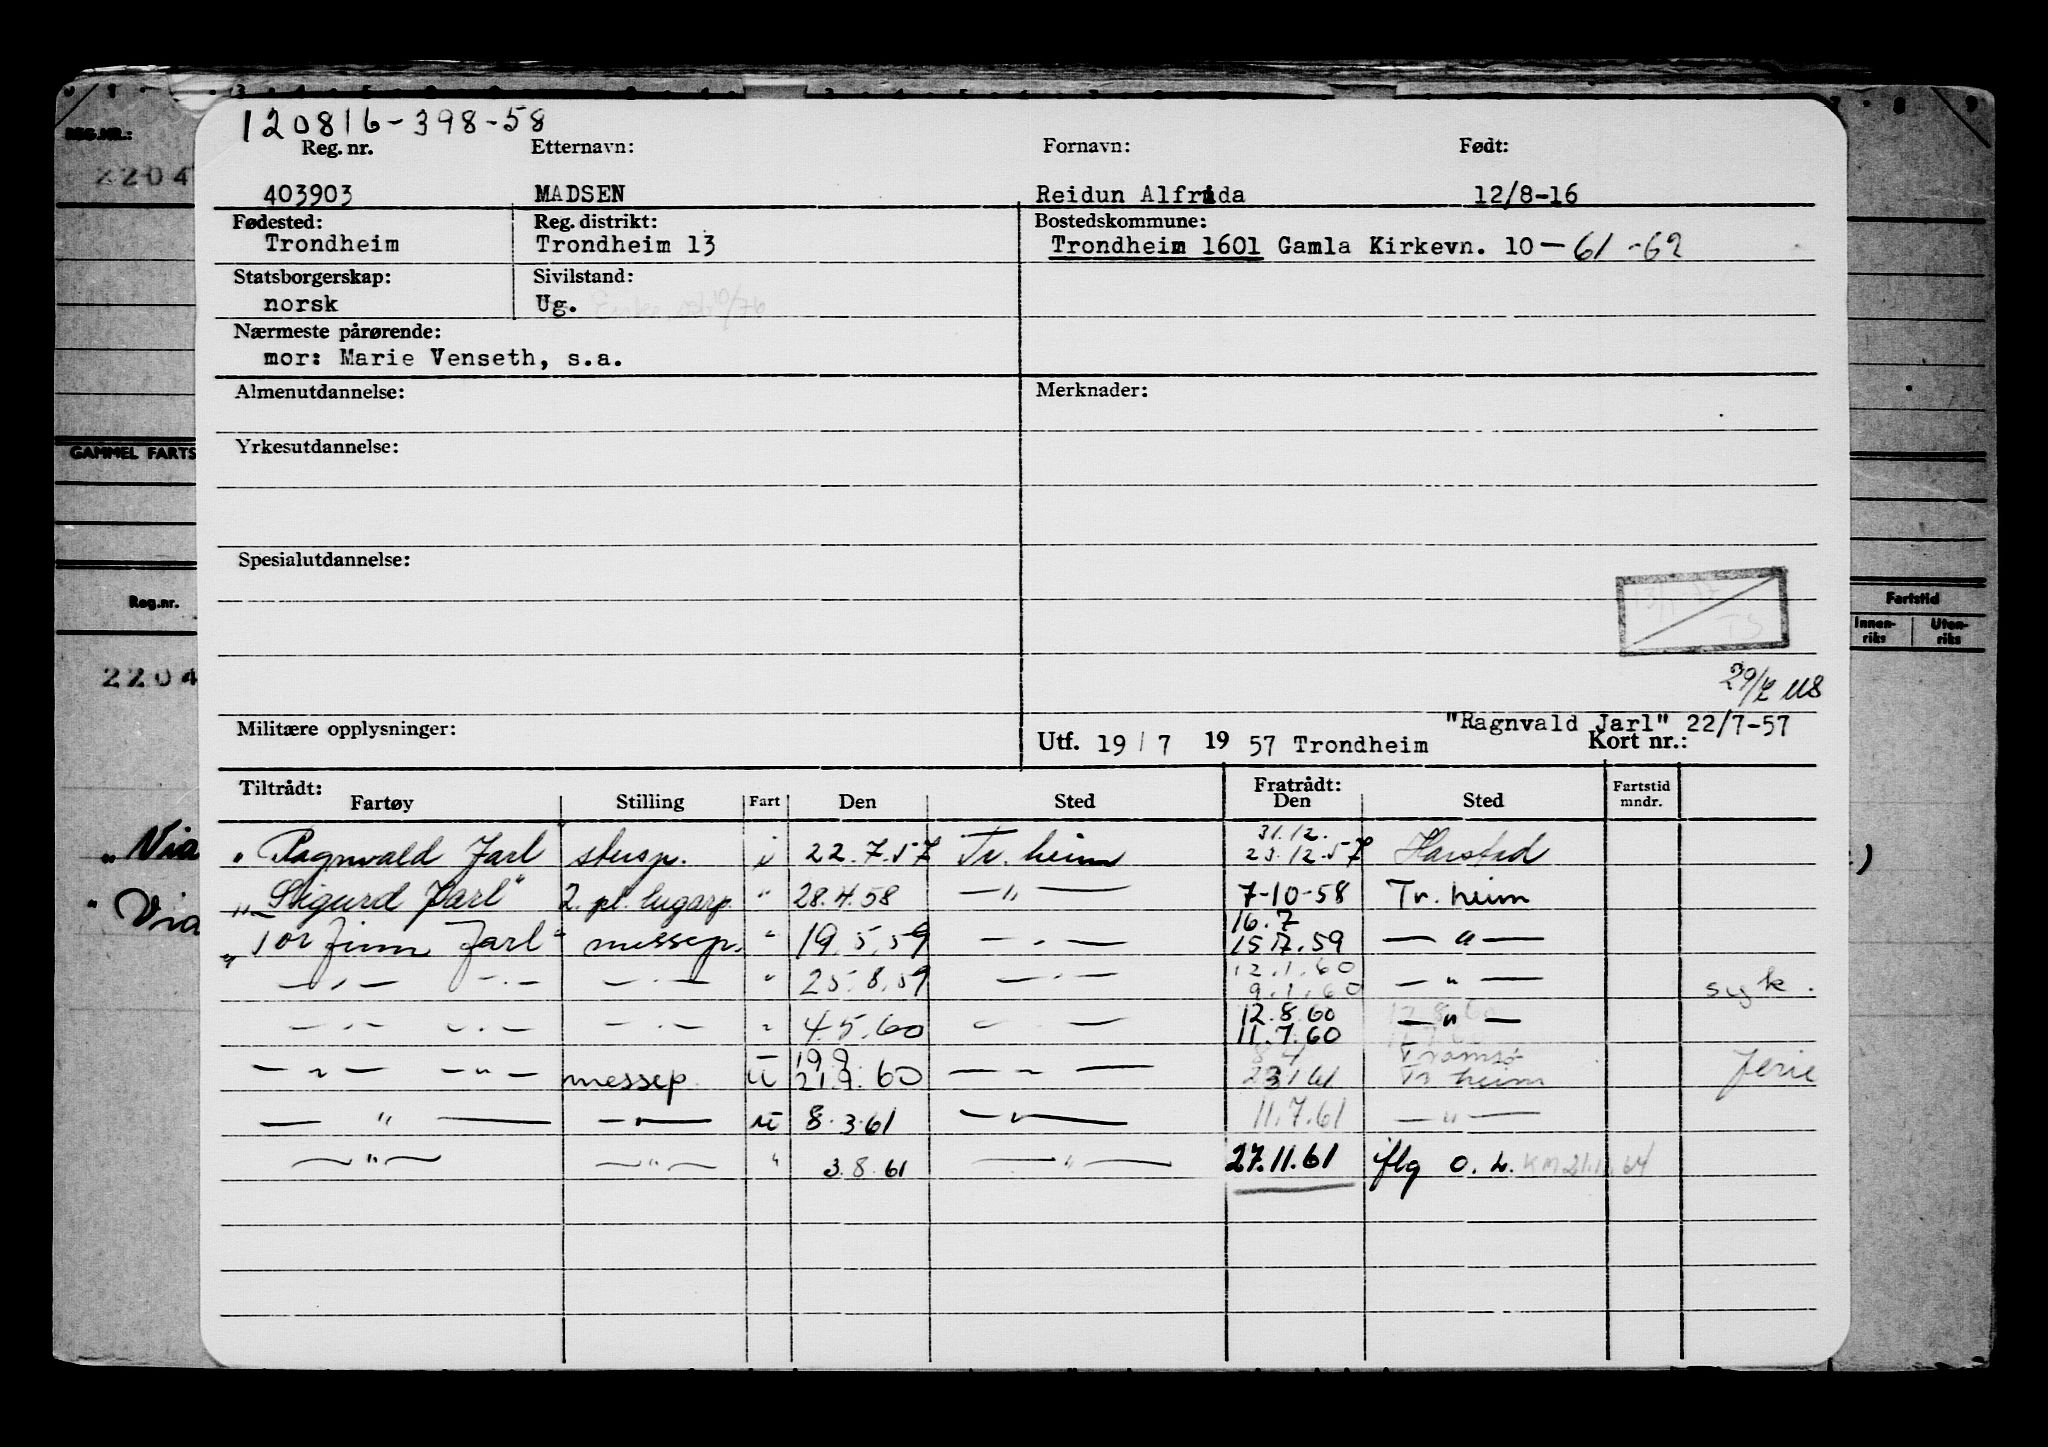 120816-398-58
REG.NR.: Reg. nr. Etternavn: Fornavn: Født:
2204 403903 MADSEN Reidun Alfrida 12/8-16
Fødested: Reg. distrikt: Bostedskommune:
Trondheim Trondheim 13 Trondheim 1601 Gamla Kirkevn. 10 - 61 - 62
Statsborgerskap: Sivilstand:
norsk Ug.
Nærmeste pårørende:
mor: Marie Venseth, s.a.
Almenutdannelse: Merknader:
Yrkesutdannelse:
GAMMEL FARTS
Spesialutdannelse:
Reg.nr. Fartstid
Innen-riks Uten-riks
2204
29/2 MS
Militære opplysninger: "Ragnvald Jarl" 22/7-57
Utf. 19/7 1957 Trondheim Kort nr.:
Tiltrådt: Fratrådt: Fartstid
Fartøy Stilling Fart Den Sted Den Sted mndr.
31.12.
" Ragnvald Jarl stersp. i 22.7.57 Tr. heim 23.12.57 Harstad
"Sigurd Jarl" 2. pl. lugarp. " 28.4.58 — " — 7-10-58 Tr. heim
16.7
"Torfinn Jarl" messep. " 19.5.59 — " — 15.7.59 — " —
12.1.60
— " — — " — — " — " 25.8.59 — " — 9.1.60 — " — syk.
12.8.60
— " — — " — — " — " 4.5.60 — " — 11.7.60 — " —
19.9 Tromsø
— " — — " — messep. u 21.9.60 — " — 23 1 61 Tr heim ferie
— " — — " — u 8.3.61 — " — 11.7.61 — " —
— " — — " — " 3.8.61 — " — 27.11.61 iflg o. L.
" Via